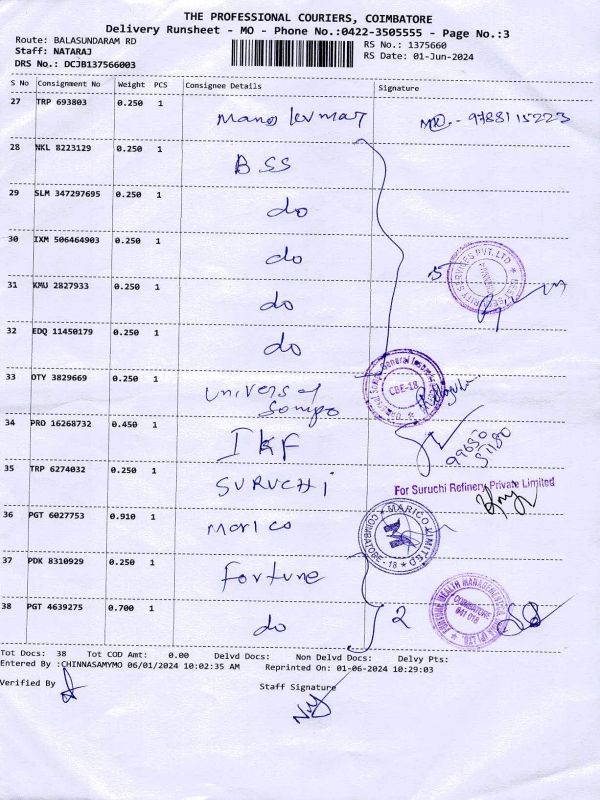 THE PROFESSIONAL COURIERS, COIMBATORE
Delivery Runsheet - MO - Phone No.:0422-3505555 - Page No.:3
Route: BALASUNDARAM RD
Staff: NATARAJ
DRS No.: DCJB137566003
RS No.: 1375660
RS Date: 01-Jun-2024
S No Consignment No Weight PCS Consignee Details Signature
27 TRP 693803 0.250 1 Mano kumar 9788115223
28 NKL 8223129 0.250 1 BSS
29 SLM 347297695 0.250 1 do
30 IXM 506464903 0.250 1 do
31 KMU 2827933 0.250 1 do 5
32 EDQ 11450179 0.250 1 do
33 OTY 3829669 0.250 1 Universal Sompo CBE-18
34 PRO 16268732 0.450 1 IKF
35 TRP 6274032 0.250 1 SURUCHI For Suruchi Refinery Private Limited
36 PGT 6027753 0.910 1 Marico MARICO LIMITED COIMBATORE - 18
37 PDK 8310929 0.250 1 Fortune
38 PGT 4639275 0.700 1 do 2 COIMBATORE 641 018
Tot Docs: 38 Tot COD Amt: 0.00 Delvd Docs: Non Delvd Docs: Delvy Pts:
Entered By :CHINNASAMYMO 06/01/2024 10:02:35 AM Reprinted On: 01-06-2024 10:29:03
Verified By
Staff Signature